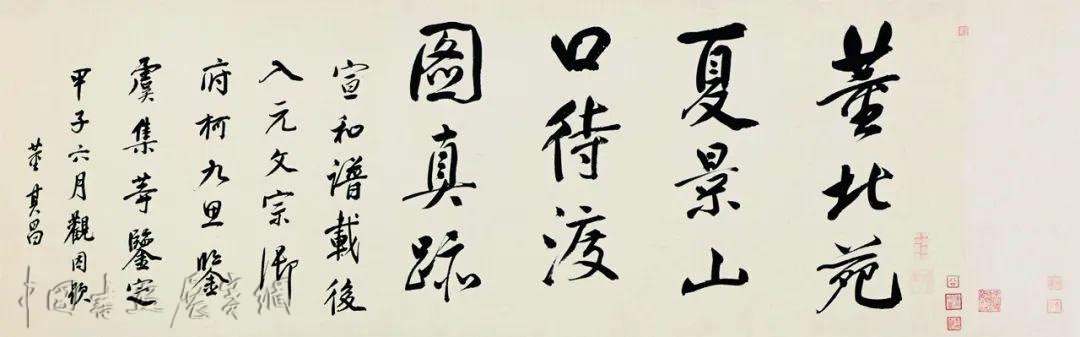 董北苑
夏景山
口待渡
圖真跡
宣和譜載後
入元文宗御
府柯九思鑒
虞集等鑒定
甲子六月觀因題
董其昌